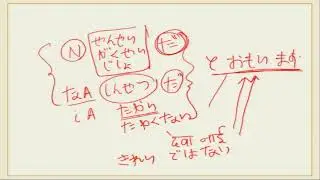 N せんせい だ
がくせい
じしょ
と おもいます
なA しんせつ だ
iA たかい
たかくない
きれい ではない